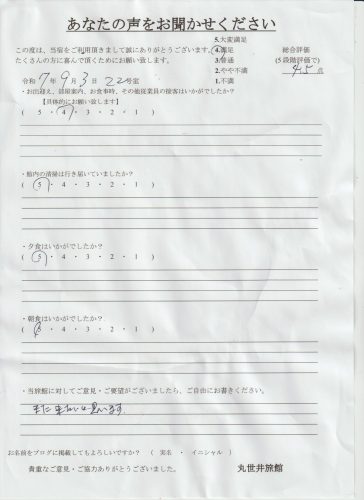 あなたの声をお聞かせください
5.大変満足
この度は、当宿をご利用頂きまして誠にありがとうございます。 4.満足 総合評価
たくさんの方に喜んで頂くためにお願い致します。 3.普通 (5段階評価で)
令和7年9月3日 22号室 2.やや不満 4.5点
・お出迎え、部屋案内、お食事時、その他従業員の接客はいかがでしたか? 1.不満
【具体的にお願い致します】
( 5 ・ 4 ・ 3 ・ 2 ・ 1 )
・館内の清掃は行き届いていましたか?
( 5 ・ 4 ・ 3 ・ 2 ・ 1 )
・夕食はいかがでしたか?
( 5 ・ 4 ・ 3 ・ 2 ・ 1 )
・朝食はいかがでしたか?
( 5 ・ 4 ・ 3 ・ 2 ・ 1 )
・当旅館に対してご意見・ご要望がございましたら、ご自由にお書きください。
また来たいと思います
お名前をブログに掲載してもよろしいですか? ( 実名 ・ イニシャル )
貴重なご意見・ご協力ありがとうございました。 丸世井旅館